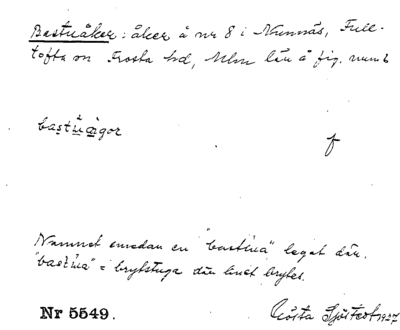 Bastuåker: åker å nr 8 i Nunnäs, Full-
tofta sn Frosta hd, Mlm län å fig. numb
bastuågor
f
Namnet emedan en "bastua" legat där.
"bastua" = brytstuga där linet brytes.
Nr 5549.
Gösta Sjöstedt 1927